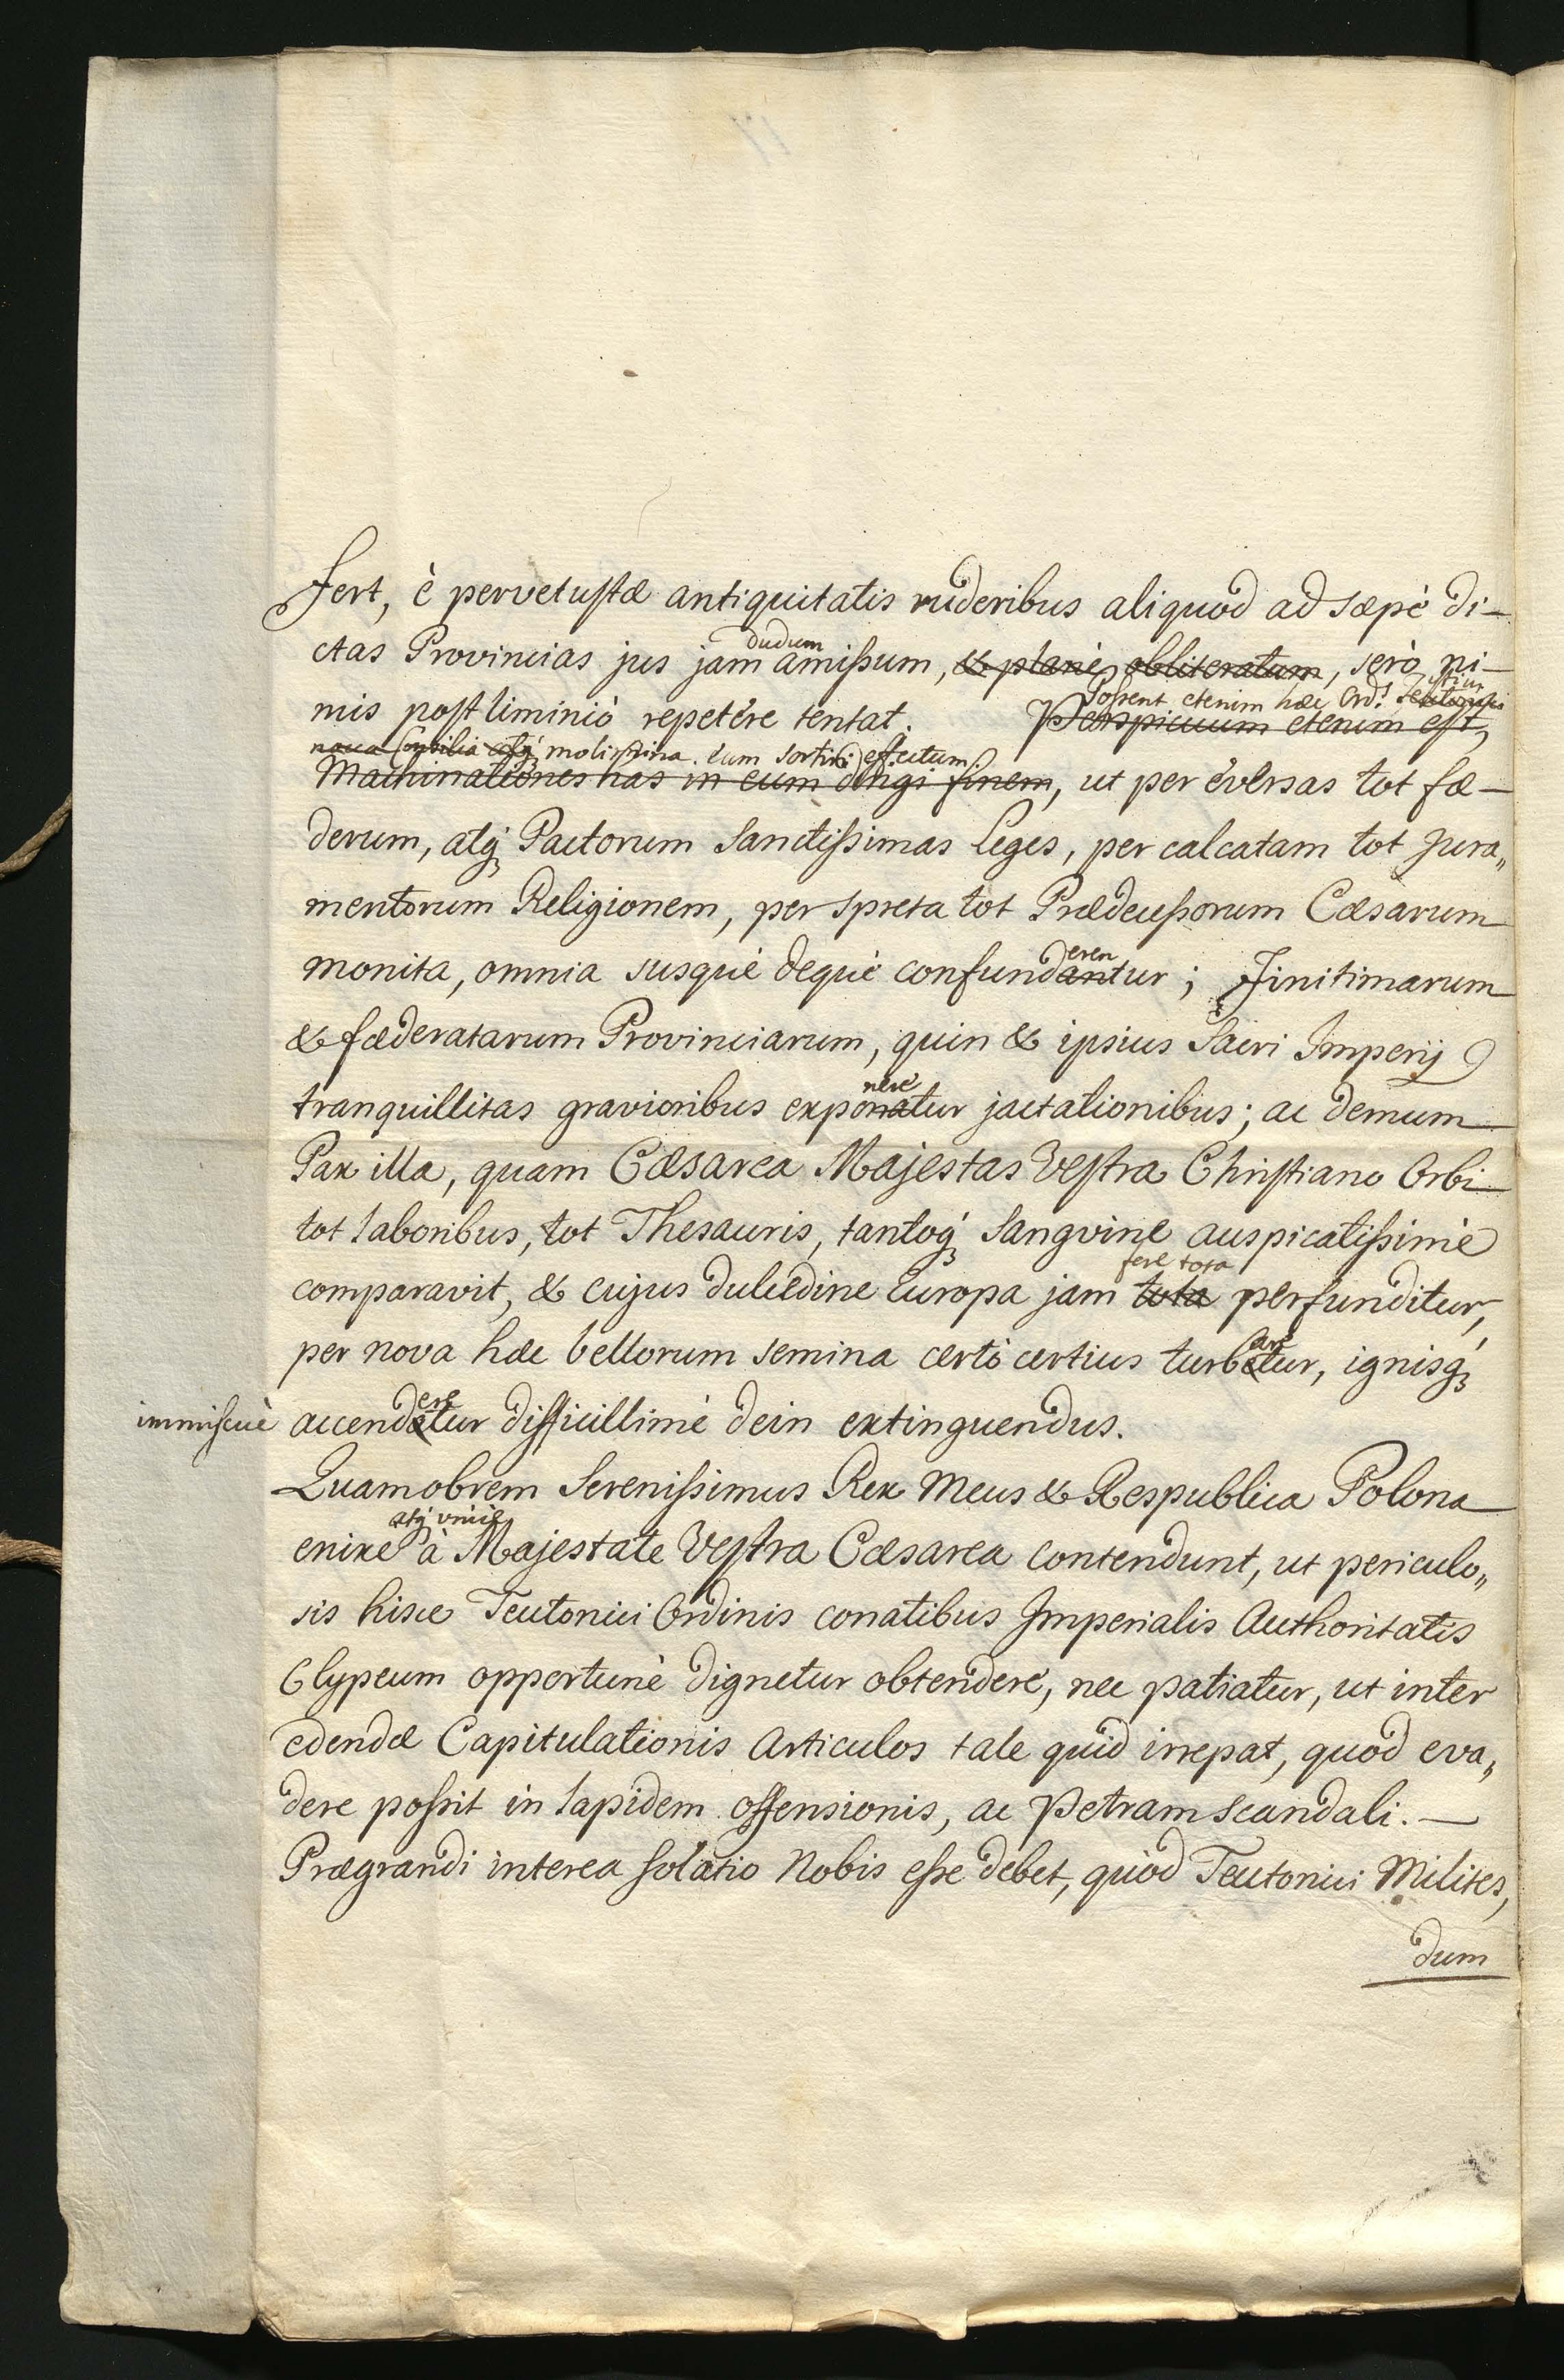 fert, è pervetustæ antiquitatis ruderibus aliquod ad sæpè di-
ctas Provincias jus jam dudum amissum, & planè obliteratum, serò ni-
mis postliminiò repetere tentat. Possent etenim hæc Ord: istius Teutonici
Perspicuum etenim est,
nova consilia atq́; molimina eum sortiri effectum
Machinationes has in eum dirigi finem, ut per eversas tot fæ-
derum, atq́; Pactorum Sanctissimas Leges, per calcatam tot Jura„
mentorum Religionem, per spreta tot Prædecessorum Cæsarum
monita, omnia susquè dequè confundantur eren; Finitimarum
& fæderatarum Provinciarum, quin & ipsius Sacri Imperij
tranquillitas gravioribus exponatur nere jactationibus; ac demum
Pax illa, quam Cæsarea Majestas Vestra Christiano Orbi
tot laboribus, tot Thesauris, tantoq́; Sangvine auspicatissimè
comparavit, & cujus dulcedine Europa jam tota fere tota perfunditur,
per nova hæc bellorum semina certò certius turbetur are, ignisq́;
immiscuè accendatur ere difficillimè dein extinguendus.
Quamobrem Serenissimus Rex Meus & Respublica Polona
enixe atq́; unicè à Majestate Vestra Cæsarea contendunt, ut periculo„
sis hisce Teutonici Ordinis conatibus Imperialis Authoritatis
Clypeum opportunè dignetur obtendere, nec patiatur, ut inter
edendæ Capitulationis Articulos tale quid irrepat, quod eva„
dere possit in lapidem offensionis, ac Petram scandali.—
Prægrandi interea solatio Nobis esse debet, quòd Teutonici Milites,
dum